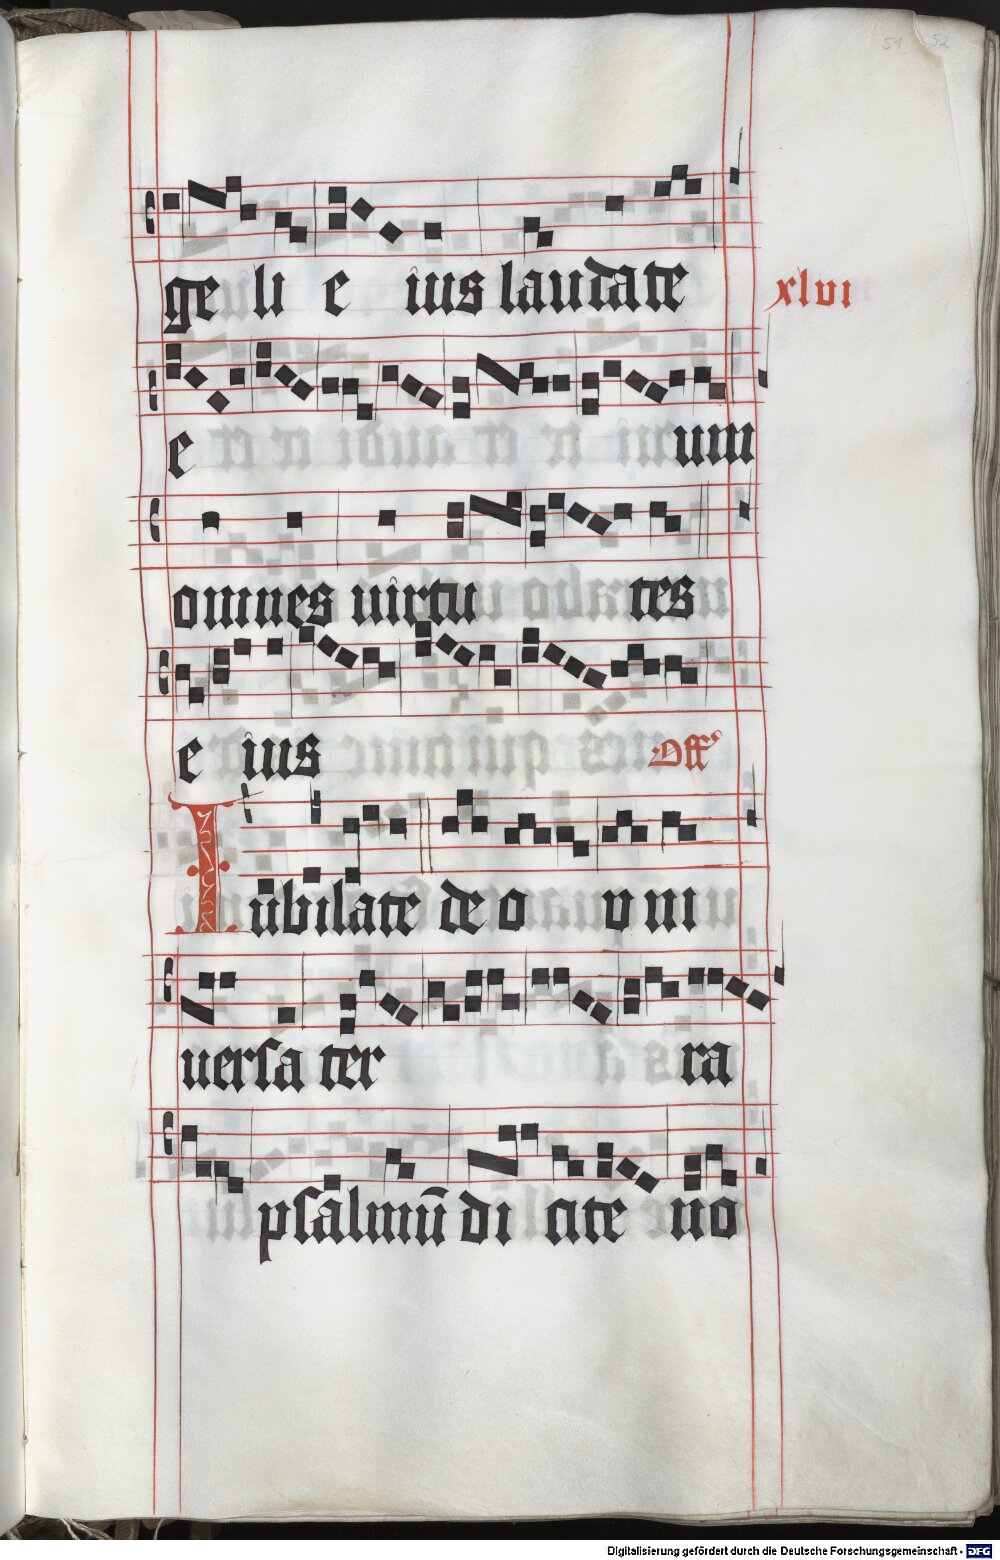 51 52
ge li e ius laudate
xlvi
e um
omnes virtu tes
e ius Off
Iubilate deo v ni
versa ter ra
psalmū di cite no
Digitalisierung gefördert durch die Deutsche Forschungsgemeinschaft - DFG